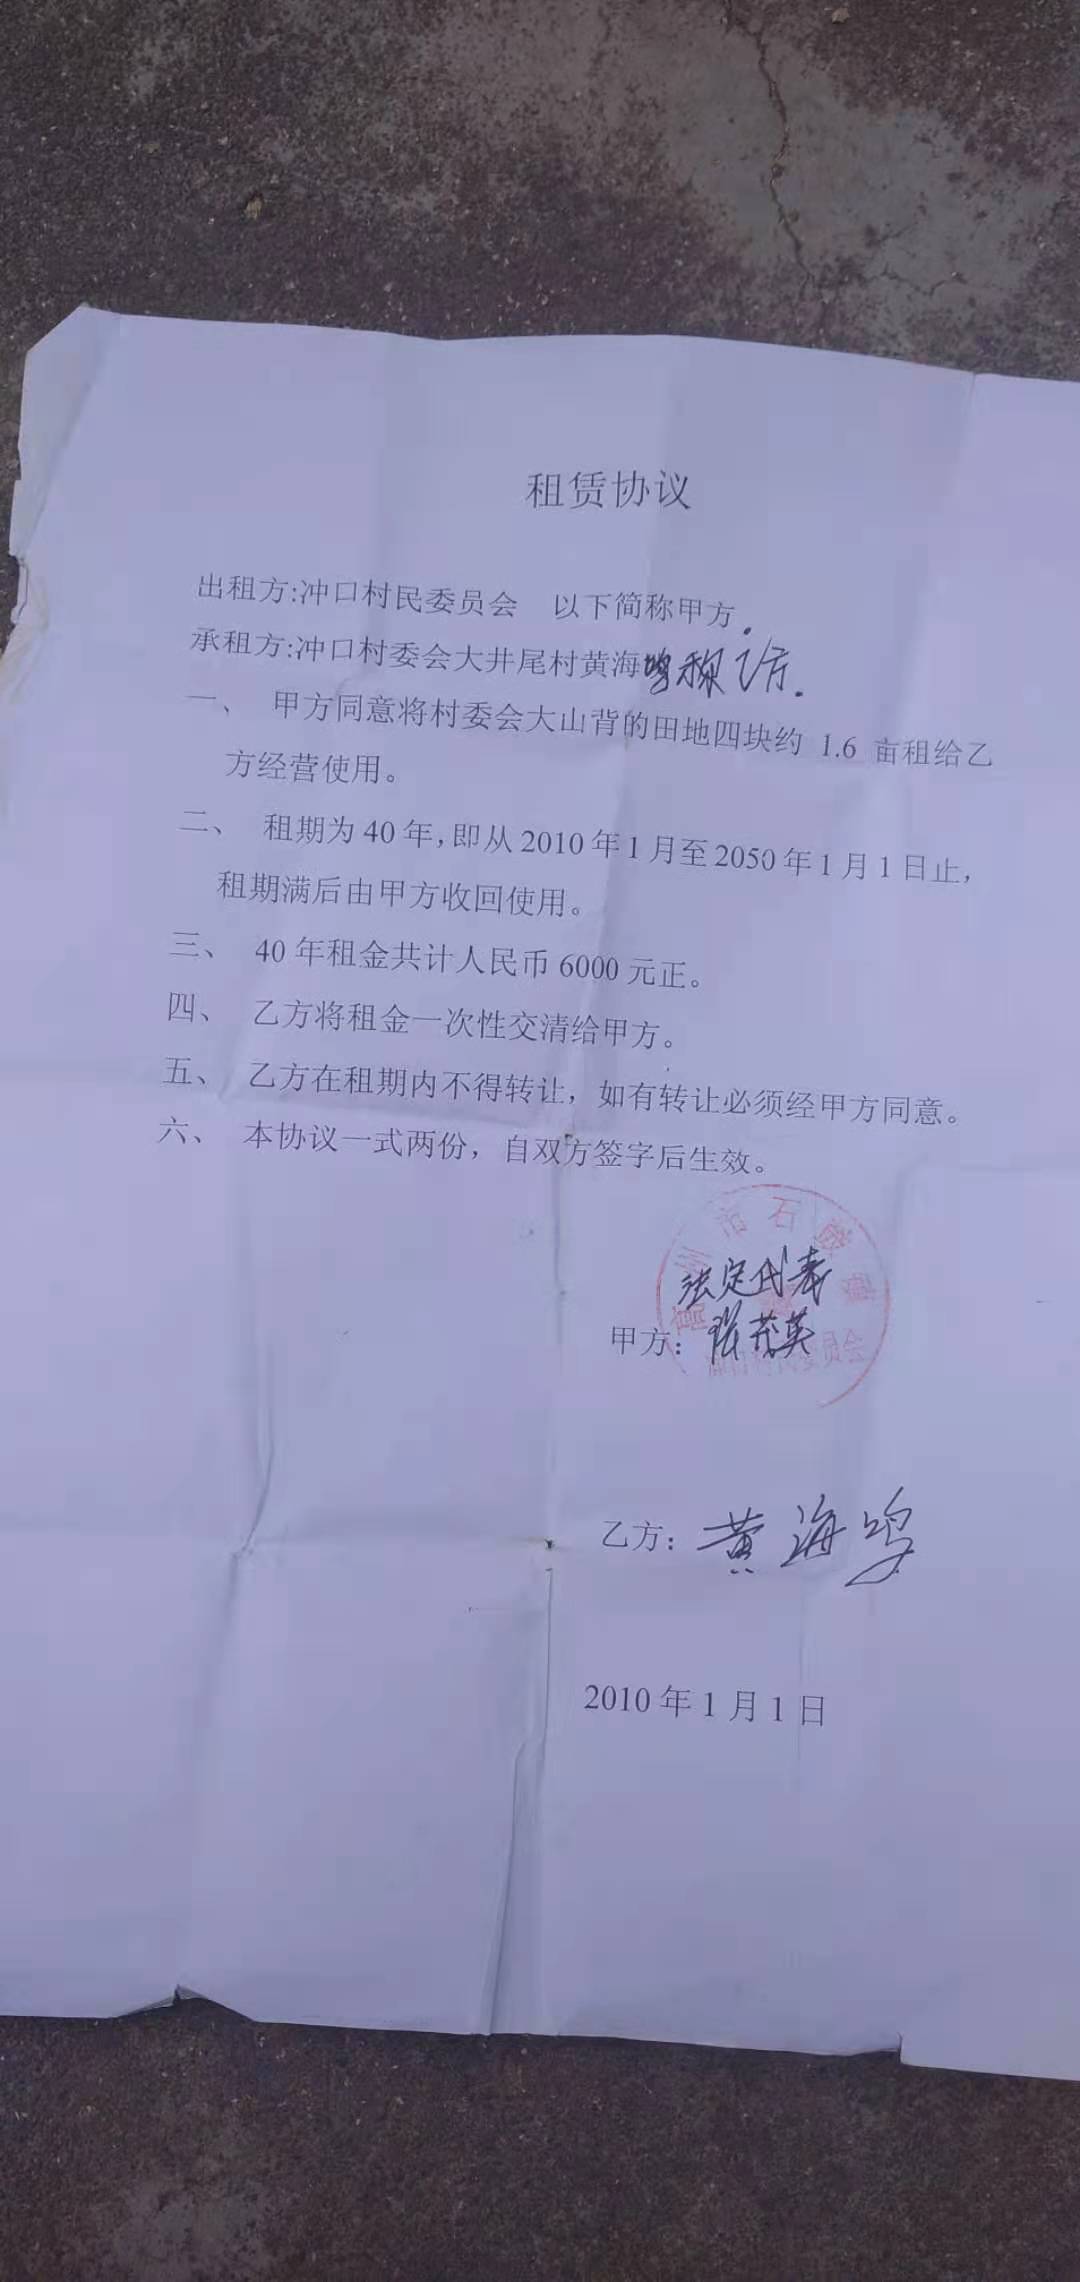 租赁协议
出租方:冲口村民委员会 以下简称甲方.
承租方:冲口村委会大井尾村黄海鸣称乙方.
一、 甲方同意将村委会大山背的田地四块约 1.6 亩租给乙
方经营使用。
二、 租期为40年,即从2010年1月至2050年1月1日止,
租期满后由甲方收回使用。
三、 40年租金共计人民币6000元正。
四、 乙方将租金一次性交清给甲方。
五、 乙方在租期内不得转让，如有转让必须经甲方同意。
六、 本协议一式两份，自双方签字后生效。
州市石鼓镇
法定代表
甲方: 张茂英
冲口村民委员会
乙方: 黄海鸣
2010年1月1日